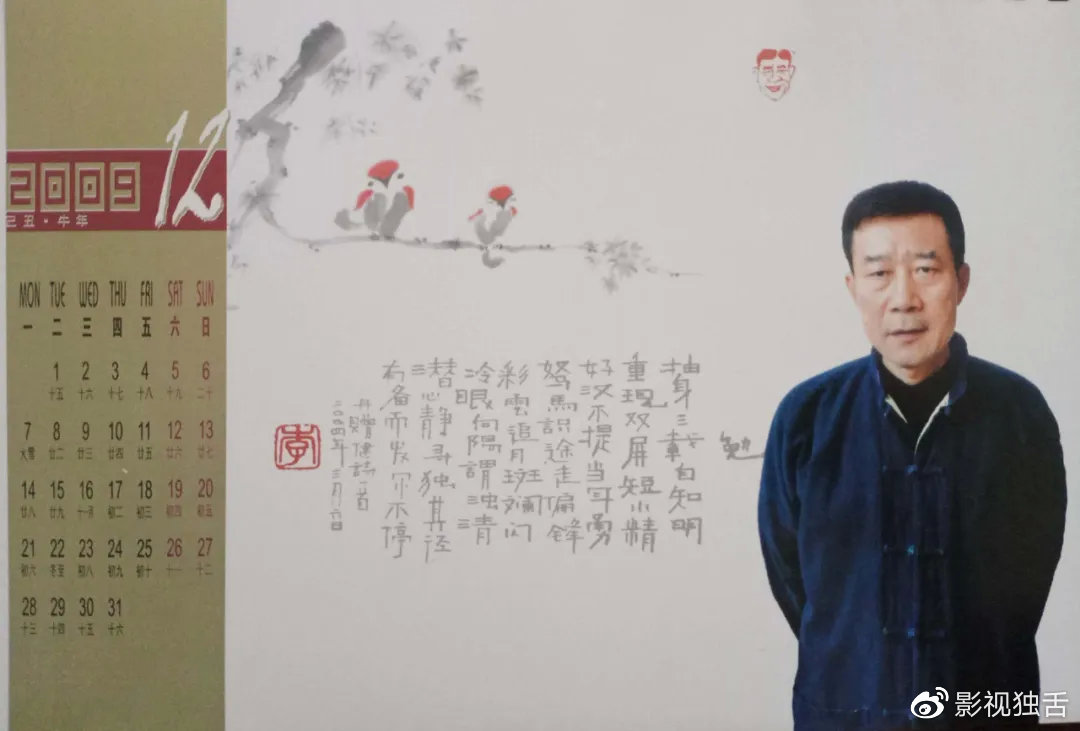 2009
己丑·牛年
12
MON TUE WED THU FRI SAT SUN
一 二 三 四 五 六 日
1 2 3 4 5 6
十五 十六 十七 十八 十九 二十
7 8 9 10 11 12 13
大雪 廿二 廿三 廿四 廿五 廿六 廿七
14 15 16 17 18 19 20
廿八 廿九 十一月 初二 初三 初四 初五
21 22 23 24 25 26 27
初六 冬至 初八 初九 初十 十一 十二
28 29 30 31
十三 十四 十五 十六
勉
抽身三载自知明
重现双屏短小精
好汉不提当年勇
驽马识途走偏锋
彩雲追月斑斓闪
冷眼向陽謂浊青
心静寻独其径
有备而发尔不停
赠健詩一首
二〇〇四年三月十六日
李
影视独舌